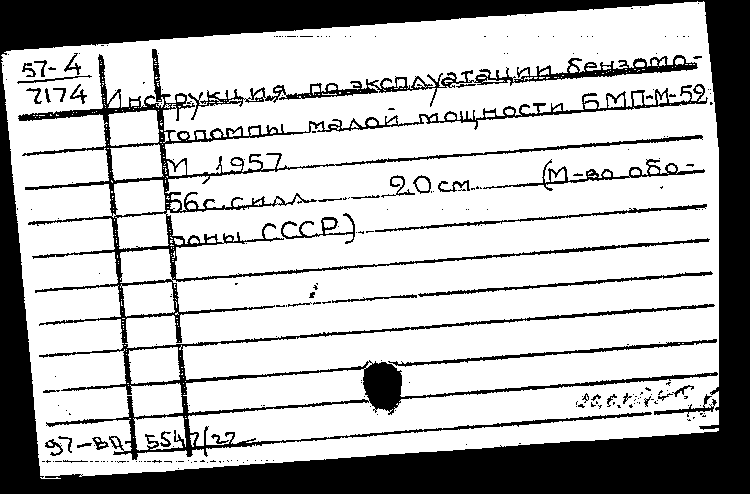 57-4
7174
Инструкция по эксплуатации бензомо-
топомпы малой мощности БМП-М-59.
М., 1957
56 с. с илл. 20 см (М-во обо-
роны СССР)
97-ВП-5547/27